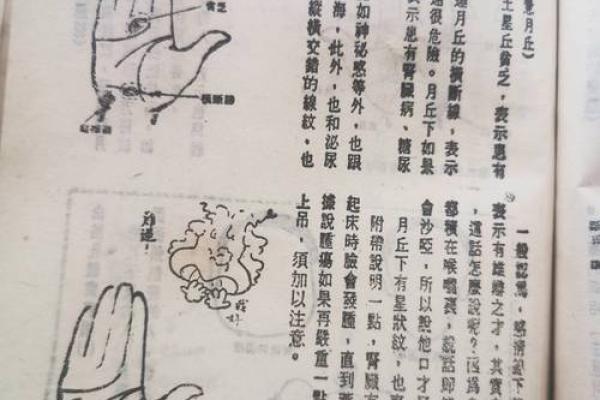 慧月丘）
土星丘貧乏，表示患有
連月丘的橫斷線，表示
途很危險。月丘下如果
表示患有腎臟病、糖尿
如神秘感等外，也跟
海，此外，也和泌尿
縱橫交錯的線紋，也
貧乏
橫斷線
一般認為，感情線下
表示有雄辯之才，其實
，這話怎麼說呢？因為
都積在喉嚨裏，說話即
會沙啞，所以說他口才
月丘下有星狀紋，也
附帶說明一點，腎臟有
起床時臉會發腫，直到
據說腫瘍如果再嚴重一點
上吊，須加以注意。